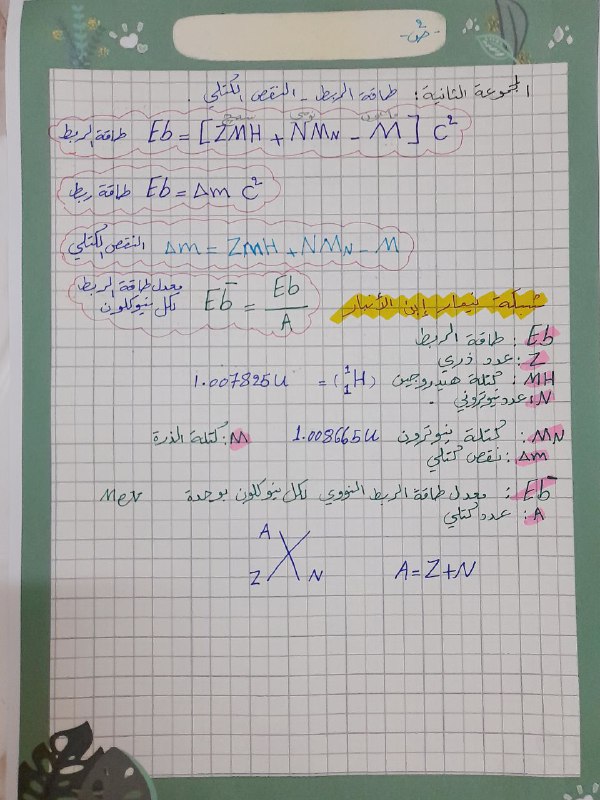 -ص٢-
المجموعة الثانية: طاقة الربط - النقص الكتلي.
طاقة الربط Eb = [ZMH + NMN - M] C²
طاقة ربط Eb = Δm C²
النقص الكتلي Δm = ZMH + NMN - M
معدل طاقة الربط لكل نيوكلون Eb̄ = Eb / A
شبكة نيفار إبن الأنبار
Eb: طاقة الربط
Z: عدد ذري
MH: كتلة هيدروجين (¹₁H) = 1.007825u
N: عدد نيوتروني.
MN: كتلة نيوترون 1.008665u M: كتلة الذرة
Δm: نقص كتلي
Eb̄: معدل طاقة الربط النووي لكل نيوكلون بوحدة Mev
A: عدد كتلي
A
X
Z N A=Z+N